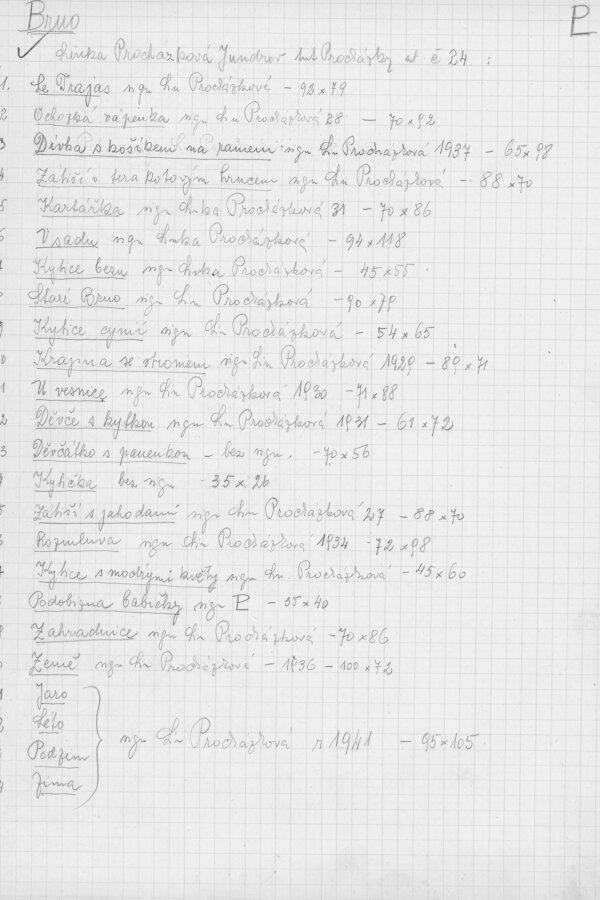 Brno P
Linka Procházková Jundrov Procházky ul č 24 :
1. Le Trajas sign Lin Procházková – 92 x 79
2 Ochozká vápenka sign Lin Procházková 28 – 70 x 92
3 Dívka s košíkem na rameni sign Lin Procházková 1937 – 65 x 98
Zátiší s terakotovým hrncem sign Lin Procházková – 88 x 70
5 Kartářka sign Linka Procházková 31 – 70 x 86
6 V sadu sign Linka Procházková – 94 x 118
Kytice bezu sign Linka Procházková – 45 x 55
Staré Brno sign Lin Procházková – 90 x 79
Kytice cynií sign Lin Procházková – 54 x 65
0 Krajina se stromem sign Lin Procházková 1929 – 89 x 71
1 U vesnice sign Lin Procházková 1930 – 71 x 88
2 Děvče s kytkou sign Lin Procházková 1931 – 61 x 72
3 Děvčátko s panenkou – bez sign. – 70 x 56
Kytička bez sign 35 x 26
5 Zátiší s jahodami sign Lin Procházková 27 – 88 x 70
Rozmluva sign Lin Procházková 1934 – 72 x 98
Kytice s modrými květy sign Lin. Procházková – 45 x 60
Podobizna babičky sign P – 35 x 40
Zahradnice sign Lin Procházková – 70 x 86
Země sign Lin Procházková – 1936 – 100 x 72
Jaro
Léto
sign Lin Procházková r 1941 – 95 x 105
Podzim
Zima